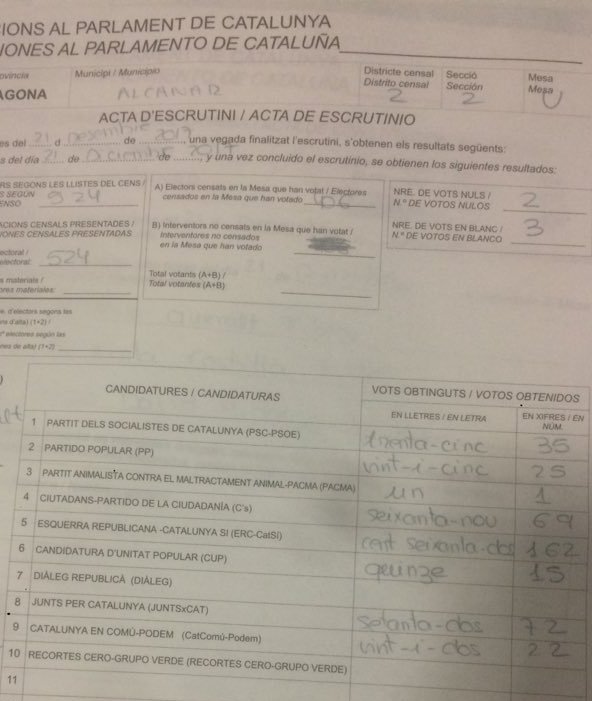 IONS AL PARLAMENT DE CATALUNYA
IONES AL PARLAMENTO DE CATALUÑA
ovincia
AGONA
Municipi / Municipio
ALCANAR
Districte censal
Distrito censal
2
Secció
Sección
2
Mesa
Mesa
U
ACTA D'ESCRUTINI / ACTA DE ESCRUTINIO
es del 21 d desembre de 2017, una vegada finalitzat l'escrutini, s'obtenen els resultats següents:
s del día 21 de Diciembre de 2017, y una vez concluido el escrutinio, se obtienen los siguientes resultados:
RS SEGONS LES LLISTES DEL CENS /
S SEGÚN
ENSO
924
ACIONS CENSALS PRESENTADES /
IONES CENSALES PRESENTADAS
ectoral /
electoral:
524
s materials /
ores materiales:
e. d'electors segons las
ns d'alta) (1+2) /
º electores según las
nes de alta) (1+2)
A) Electors censats en la Mesa que han votat / Electores
censados en la Mesa que han votado
406
B) Interventors no censats en la Mesa que han votat /
Interventores no censados
en la Mesa que han votado
Total votants (A+B) /
Total votantes (A+B)
NRE. DE VOTS NULS /
N.º DE VOTOS NULOS
2
NRE. DE VOTS EN BLANC /
N.º DE VOTOS EN BLANCO
3
CANDIDATURES / CANDIDATURAS
VOTS OBTINGUTS / VOTOS OBTENIDOS
EN LLETRES / EN LETRA
EN XIFRES / EN
NÚM.
1 PARTIT DELS SOCIALISTES DE CATALUNYA (PSC-PSOE) trenta-cinc 35
2 PARTIDO POPULAR (PP) vint-i-cinc 25
3 PARTIT ANIMALISTA CONTRA EL MALTRACTAMENT ANIMAL-PACMA (PACMA) un 1
4 CIUTADANS-PARTIDO DE LA CIUDADANÍA (C's) seixanta-nou 69
5 ESQUERRA REPUBLICANA -CATALUNYA SI (ERC-CatSI) cent seixanta-dos 162
6 CANDIDATURA D'UNITAT POPULAR (CUP) quinze 15
7 DIÀLEG REPUBLICÀ (DIÀLEG)
8 JUNTS PER CATALUNYA (JUNTSxCAT) setanta-dos 72
9 CATALUNYA EN COMÚ-PODEM (CatComú-Podem) vint-i-dos 22
10 RECORTES CERO-GRUPO VERDE (RECORTES CERO-GRUPO VERDE)
11